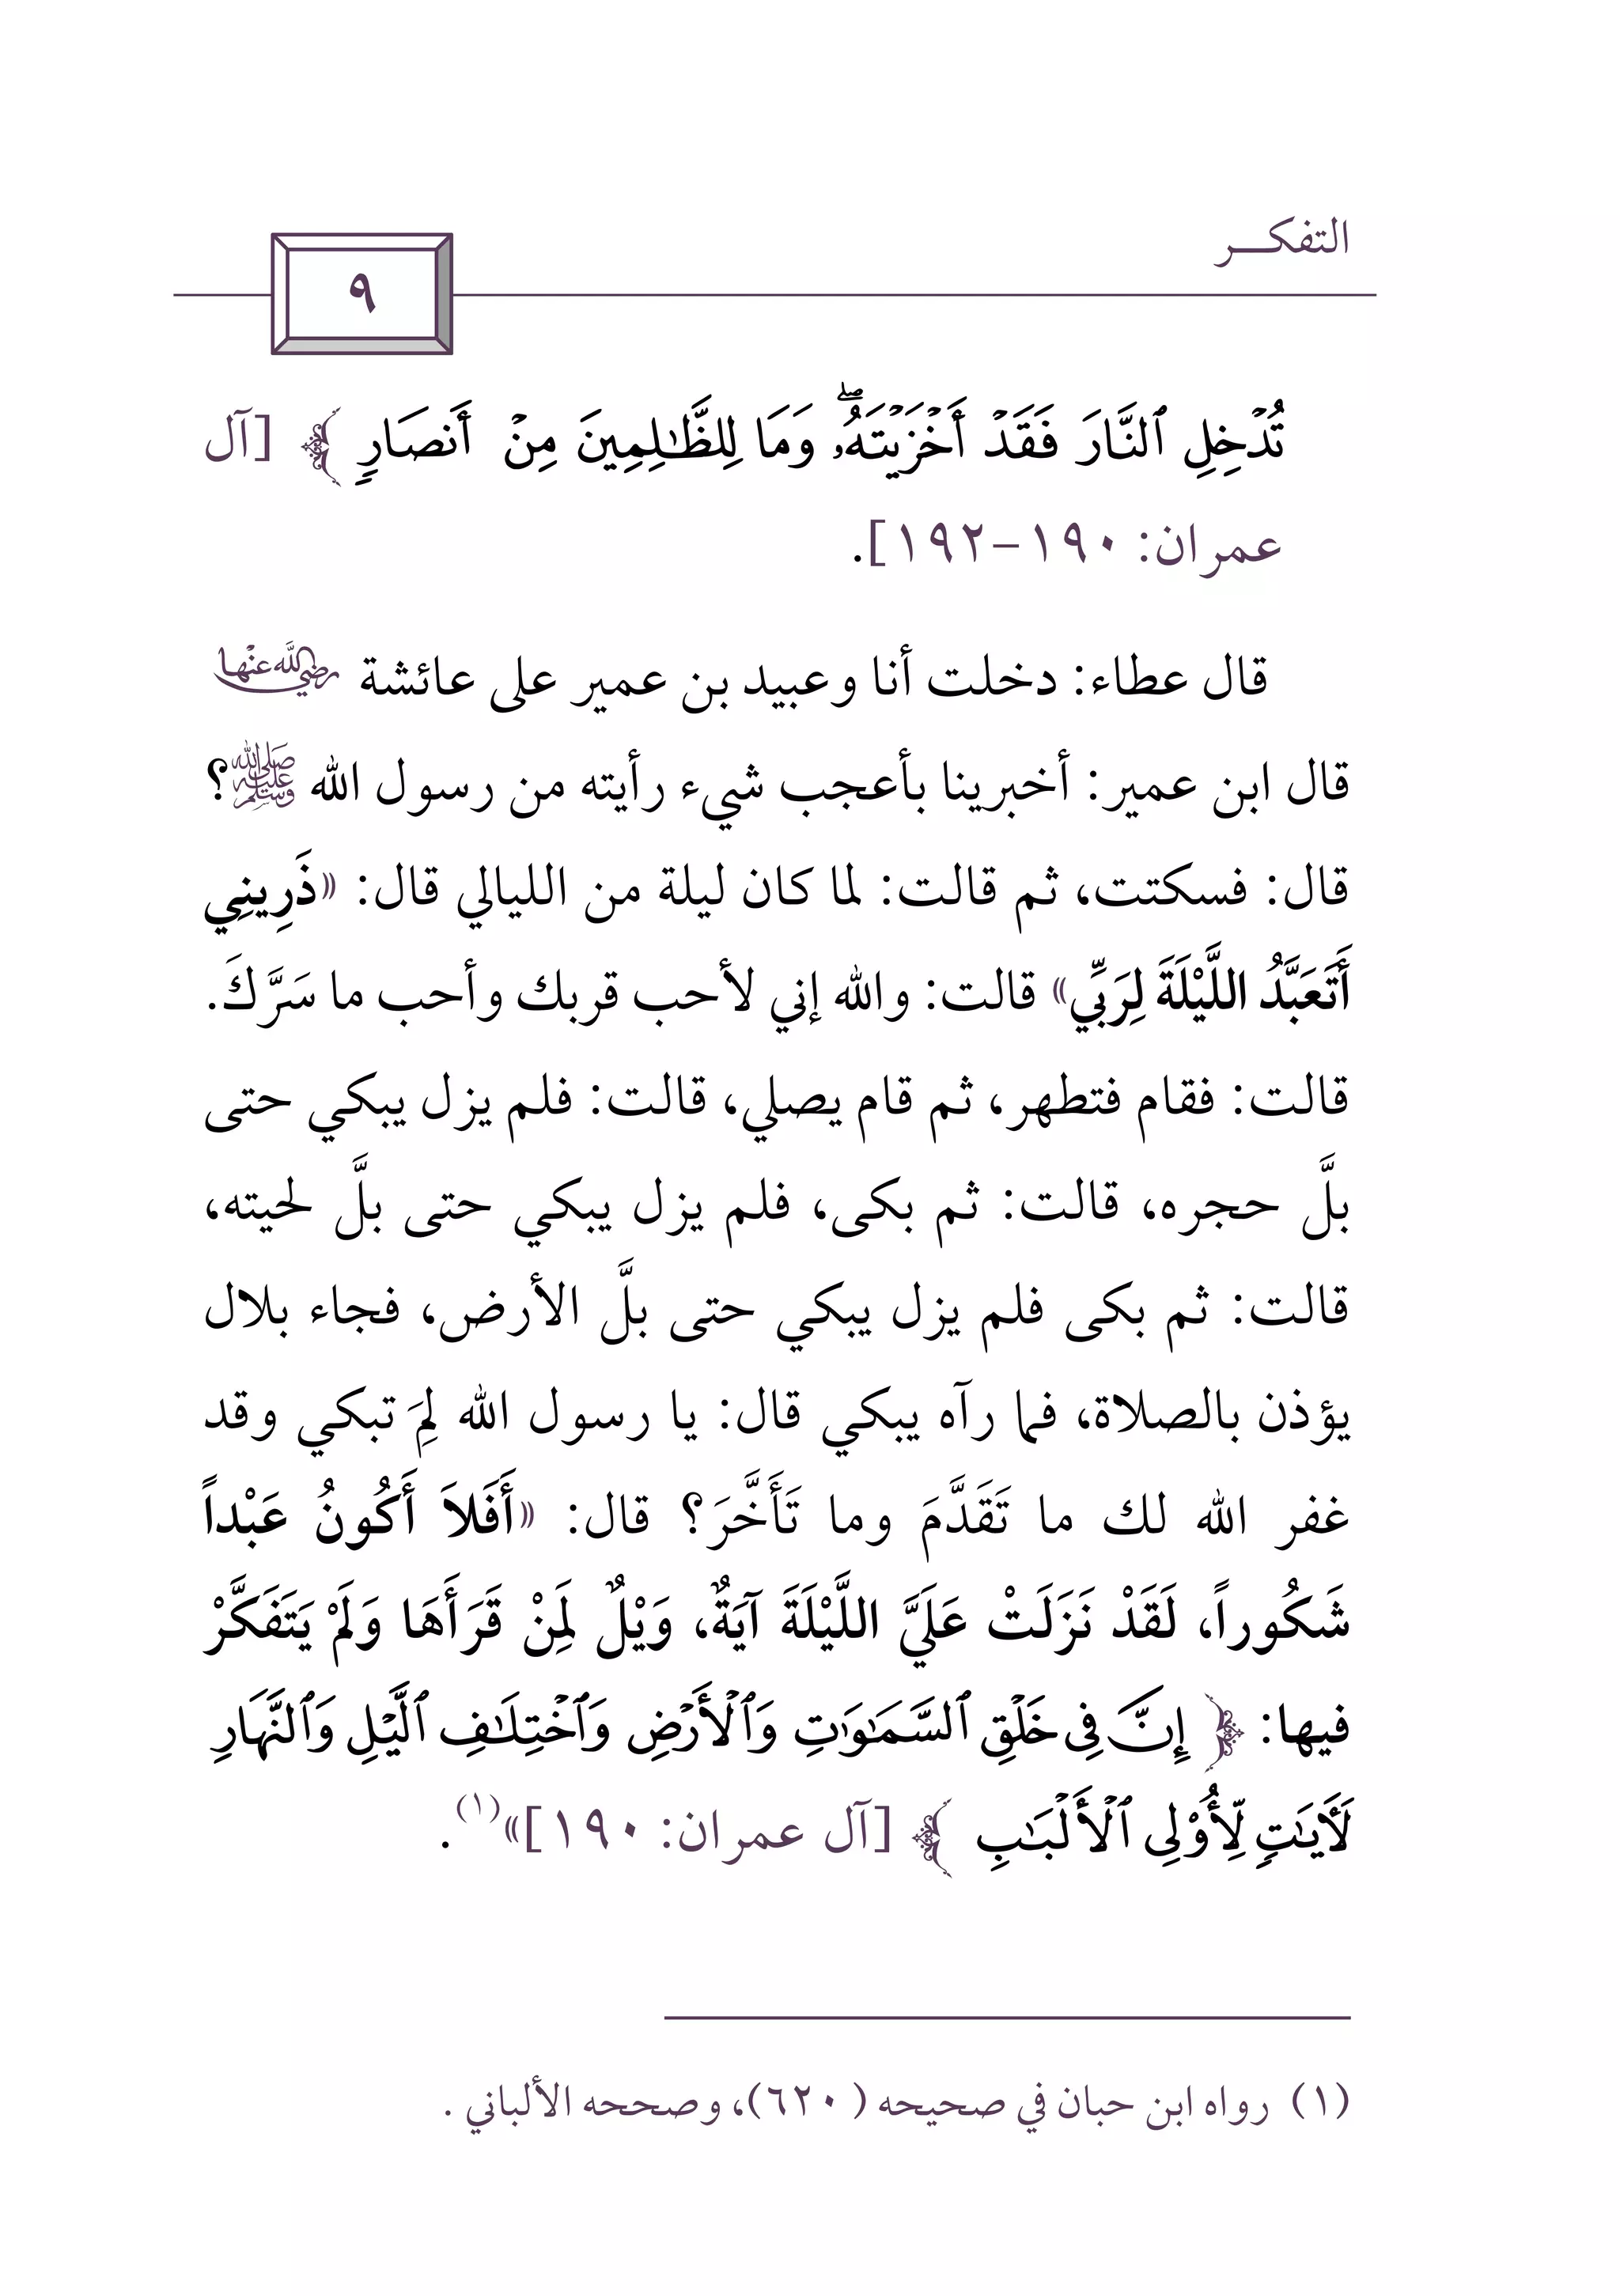 التفكـــر
٩
تُدْخِلِ ٱلنَّارَ فَقَدْ أَخْزَيْتَهُۥ ۖ وَمَا لِلظَّـٰلِمِينَ مِنْ أَنصَارٍ ﴾ [آل
عمران: ١٩٠-١٩٢].
قال عطاء: دخلت أنا وعبيد بن عمير على عائشة رضي الله عنها
قال ابن عمير: أخبرينا بأعجب شيء رأيته من رسول الله ﷺ؟
قال: فسكتت، ثم قالت: لما كان ليلة من الليالي قال: «ذَرِينِي
أَتَعَبَّدُ اللَّيْلَةَ لِرَبِّي» قالت: والله إني لأحب قربك وأحب ما سَرَّكَ.
قالت: فقام فتطهر، ثم قام يصلي، قالت: فلم يزل يبكي حتى
بلَّ حجره، قالت: ثم بكى، فلم يزل يبكي حتى بلَّ لحيته،
قالت: ثم بكى فلم يزل يبكي حتى بلَّ الأرض، فجاء بلال
يؤذن بالصلاة، فلما رآه يبكي قال: يا رسول الله لِمَ تبكي وقد
غفر الله لك ما تَقَدَّمَ وما تَأَخَّرَ؟ قال: «أَفَلاَ أَكُونُ عَبْداً
شَكُوراً، لَقَدْ نَزَلَتْ عَلَيَّ اللَّيْلَةَ آيَةٌ، وَيْلٌ لِمَنْ قَرَأَهَا وَلَمْ يَتَفَكَّرْ
فيها: ﴿ إِنَّ فِى خَلْقِ ٱلسَّمَـٰوَٰتِ وَٱلْأَرْضِ وَٱخْتِلَـٰفِ ٱلَّيْلِ وَٱلنَّهَارِ
لَـَٔايَـٰتٍ لِّأُو۟لِى ٱلْأَلْبَـٰبِ ﴾ [آل عمران: ١٩٠]»(١).
(١) رواه ابن حبان في صحيحه (٦٢٠)، وصححه الألباني .